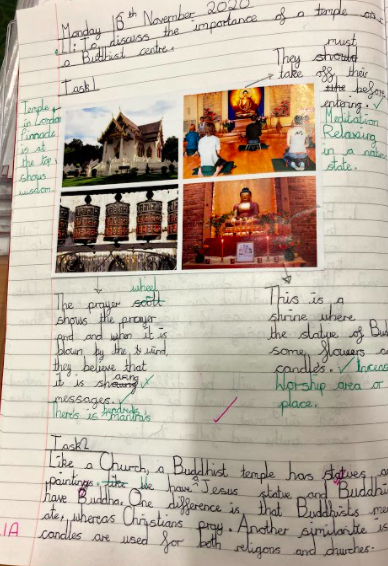 Monday 16th November 2020
LI: To discuss the importance of a temple or
a Buddhist centre.
Task 1
They must
take off their
before
entering. ✓
Meditation
Relaxing
in a
state.
Temple
in London
Pinnacle
is at
the top
shows
wisdom.
The prayer wheel
shows the prayer
and and when it is
blown by the wind,
they believe that
it is sharing ✓
messages. ✓
There is hundreds mantra's
This is a
shrine where
the statue of Bud
some flowers a
candles. ✓ Incens
Worship area or
place.
Task 2
Like a Church, a Buddhist temple has statues an
paintings. We have a Jesus statue and Buddhi
have Buddha. One difference is that Buddhists me
ate, whereas Christians pray. Another similarite is
candles are used for both religons and churches.
1A